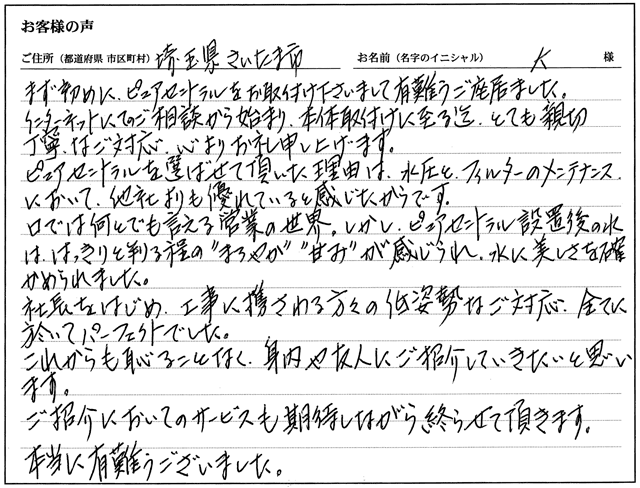 お客様の声
ご住所（都道府県 市区町村） 埼玉県さいたま市 お名前（名字のイニシャル） K 様
まず初めに、ピュアセントラルをお取付け下さいまして有難うご座居ました。
インターネットにてのご相談から始まり、本体取付けに至る迄、とても親切
丁寧なご対応、心よりお礼申し上げます。
ピュアセントラルを選ばせて頂いた理由は、水圧と、フィルターのメンテナンス
において、他社よりも優れていると感じたからです。
口では何とでも言える営業の世界。しかし、ピュアセントラル設置後の水
は、はっきりと判る程の"まろやか""甘さ"が感じられ、水に美しさを確
かめられました。
社長をはじめ、工事に携さわる方々の低姿勢なご対応、全てに
於いてパーフェクトでした。
これからも恥ることなく、身内や友人にご紹介していきたいと思い
ます。
ご紹介においてのサービスも期待しながら終らせて頂きます。
本当に有難うございました。